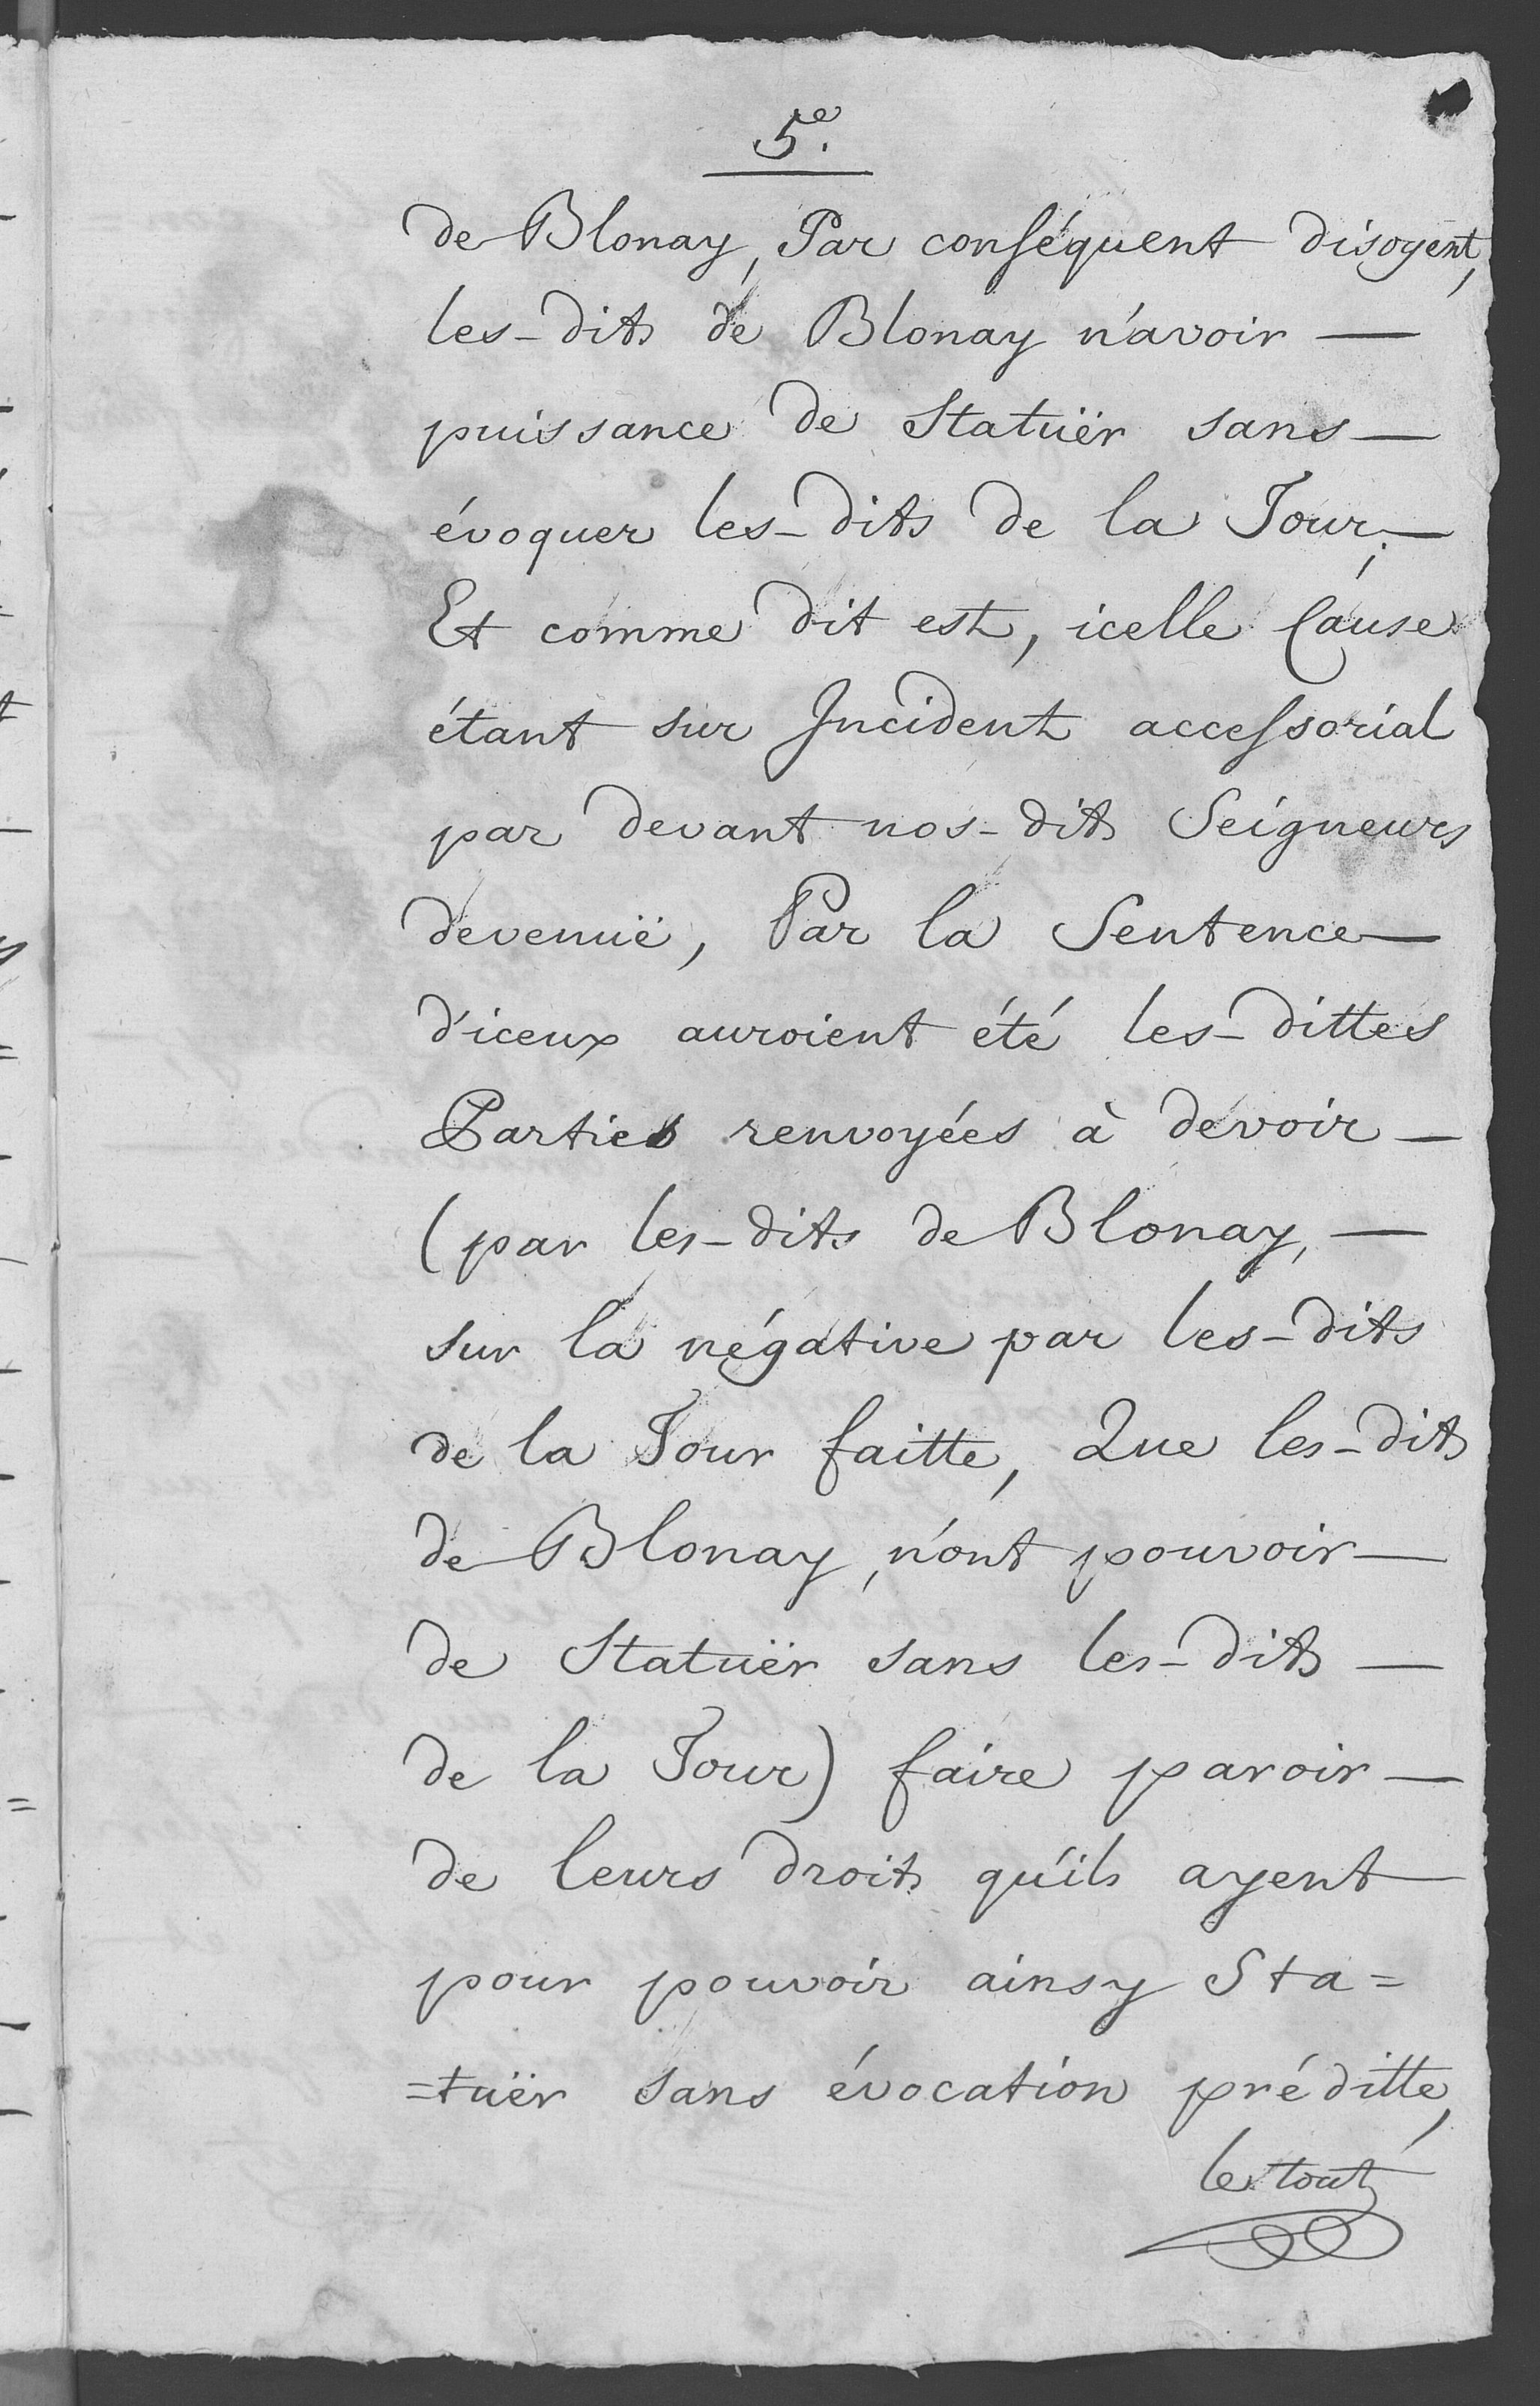 5e.
de Blonay, Par conséquent disoyent,
les-dits de Blonay n'avoir —
puissance de Statuër sans —
évoquer les-dits de la Tour; —
Et comme dit est, icelle Cause
étant sur Incident accessorial
par devant nos-dits Seigneurs
devenuë, Par la Sentence —
d'iceux auroient été les-dittes
Parties renvoyées à devoir —
(par les-dits de Blonay, —
sur la négative par les-dits
de la Tour faitte, Que les-dits
de Blonay, n'ont pouvoir —
de Statuër sans les-dits —
de la Tour) faire paroir —
de leurs droits qu'ils ayent
pour pouvoir ainsy Sta=
=tuër sans évocation préditte,
le tout